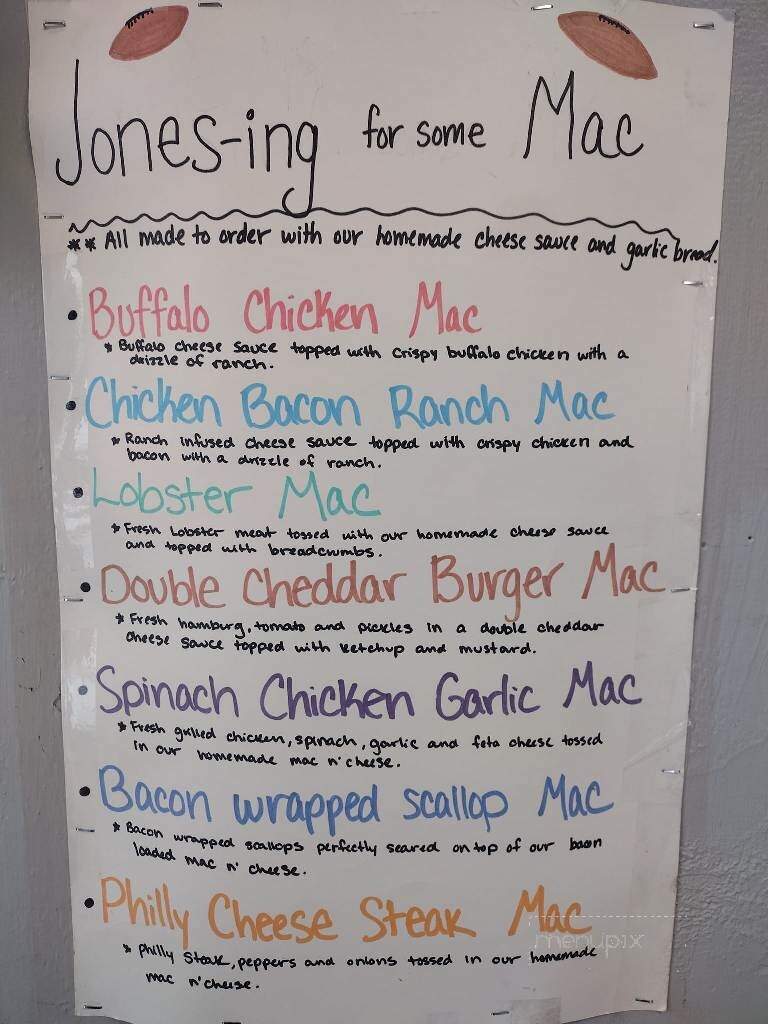 Jones-ing for some Mac
** All made to order with our homemade cheese sauce and garlic bread.
• Buffalo Chicken Mac
* Buffalo cheese sauce topped with crispy buffalo chicken with a
drizzle of ranch.
• Chicken Bacon Ranch Mac
* Ranch infused cheese sauce topped with crispy chicken and
bacon with a drizzle of ranch.
• Lobster Mac
* Fresh Lobster meat tossed with our homemade cheese sauce
and topped with breadcrumbs.
• Double Cheddar Burger Mac
* Fresh hamburg, tomato and pickles in a double cheddar
cheese sauce topped with ketchup and mustard.
• Spinach Chicken Garlic Mac
* Fresh grilled chicken, spinach, garlic and feta cheese tossed
in our homemade mac n' cheese.
• Bacon wrapped scallop Mac
* Bacon wrapped scallops perfectly seared on top of our bacon
loaded mac n' cheese.
• Philly Cheese Steak Mac
* Philly Steak, peppers and onions tossed in our homemade
mac n' cheese.
menupix